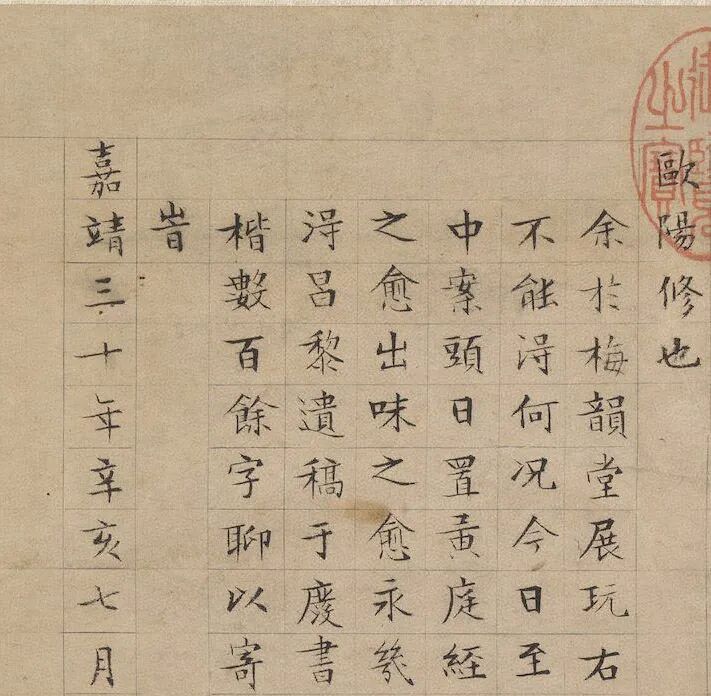 歐陽修也
余於梅韻堂展玩右
不能得何况今日至
中案頭日置黃庭經
之愈出味之愈永幾
得昌黎遺稿于廢書
楷數百餘字聊以寄
旹
嘉靖三十年辛亥七月